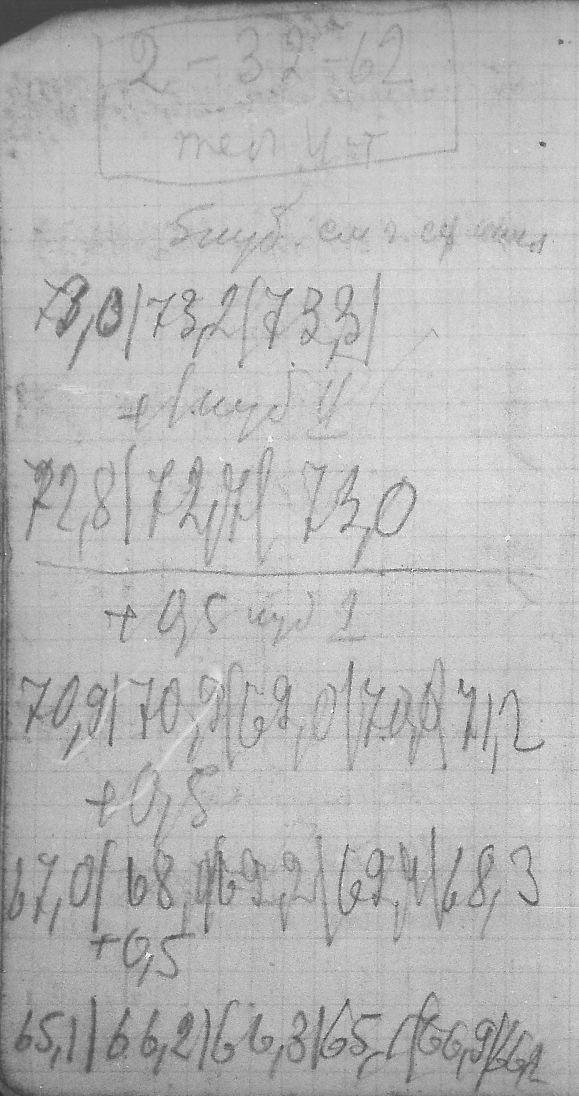 2-32-62
5 куб. см
73,0|73,2|73,3|
+1 куб
72,8|72,7| 73,0
+ 0,5 куб 1
70,9|70,9|69,0|70,0|71,2
+0,5
67,0|68,0|69,2|69,4|68,3
+0,5
65,1|66,2|66,3|65,1|66,9|66,2